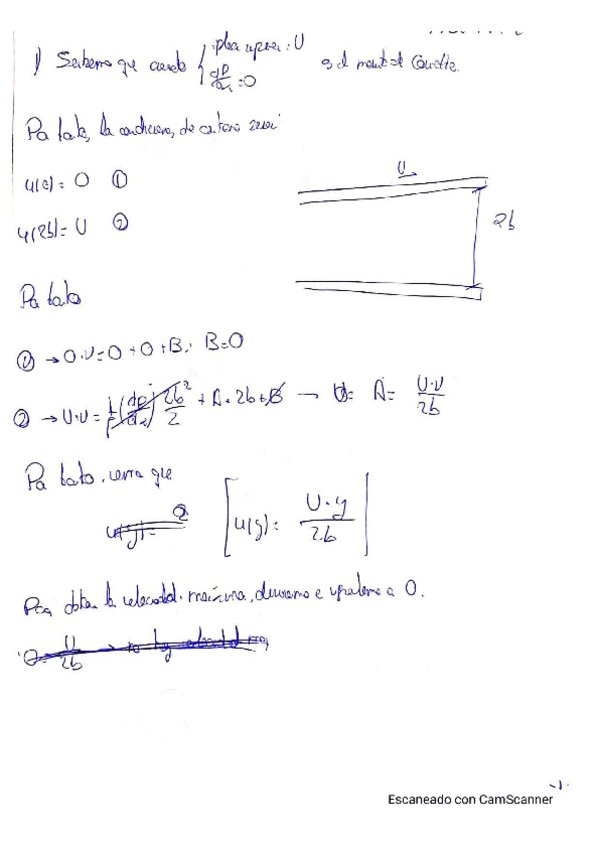 1) Sabemos que cuando { placa superior: U
dp/dx = 0
es el movimiento de Couette.
Por tanto, las condiciones de contorno serán:
u(0) = 0 ①
u(2b) = U ②
U
2b
Por tanto
① → 0·ν = 0 + 0 + B; B = 0
② → U·ν = 1/ρ (dp/dx) 2b²/2 + A·2b + B → A = U·ν/2b
Por tanto, vemos que
u(y) =
[u(y) = U·y/2b]
Para obtener la velocidad máxima, derivamos e igualamos a 0.
0 = U/2b → no hay velocidad
-1-
Escaneado con CamScanner